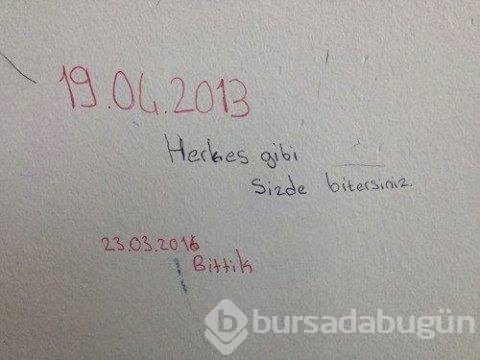 19.04.2013
Herkes gibi
Sizde bitersiniz.
23.03.2016
Bittik
bursadabugün